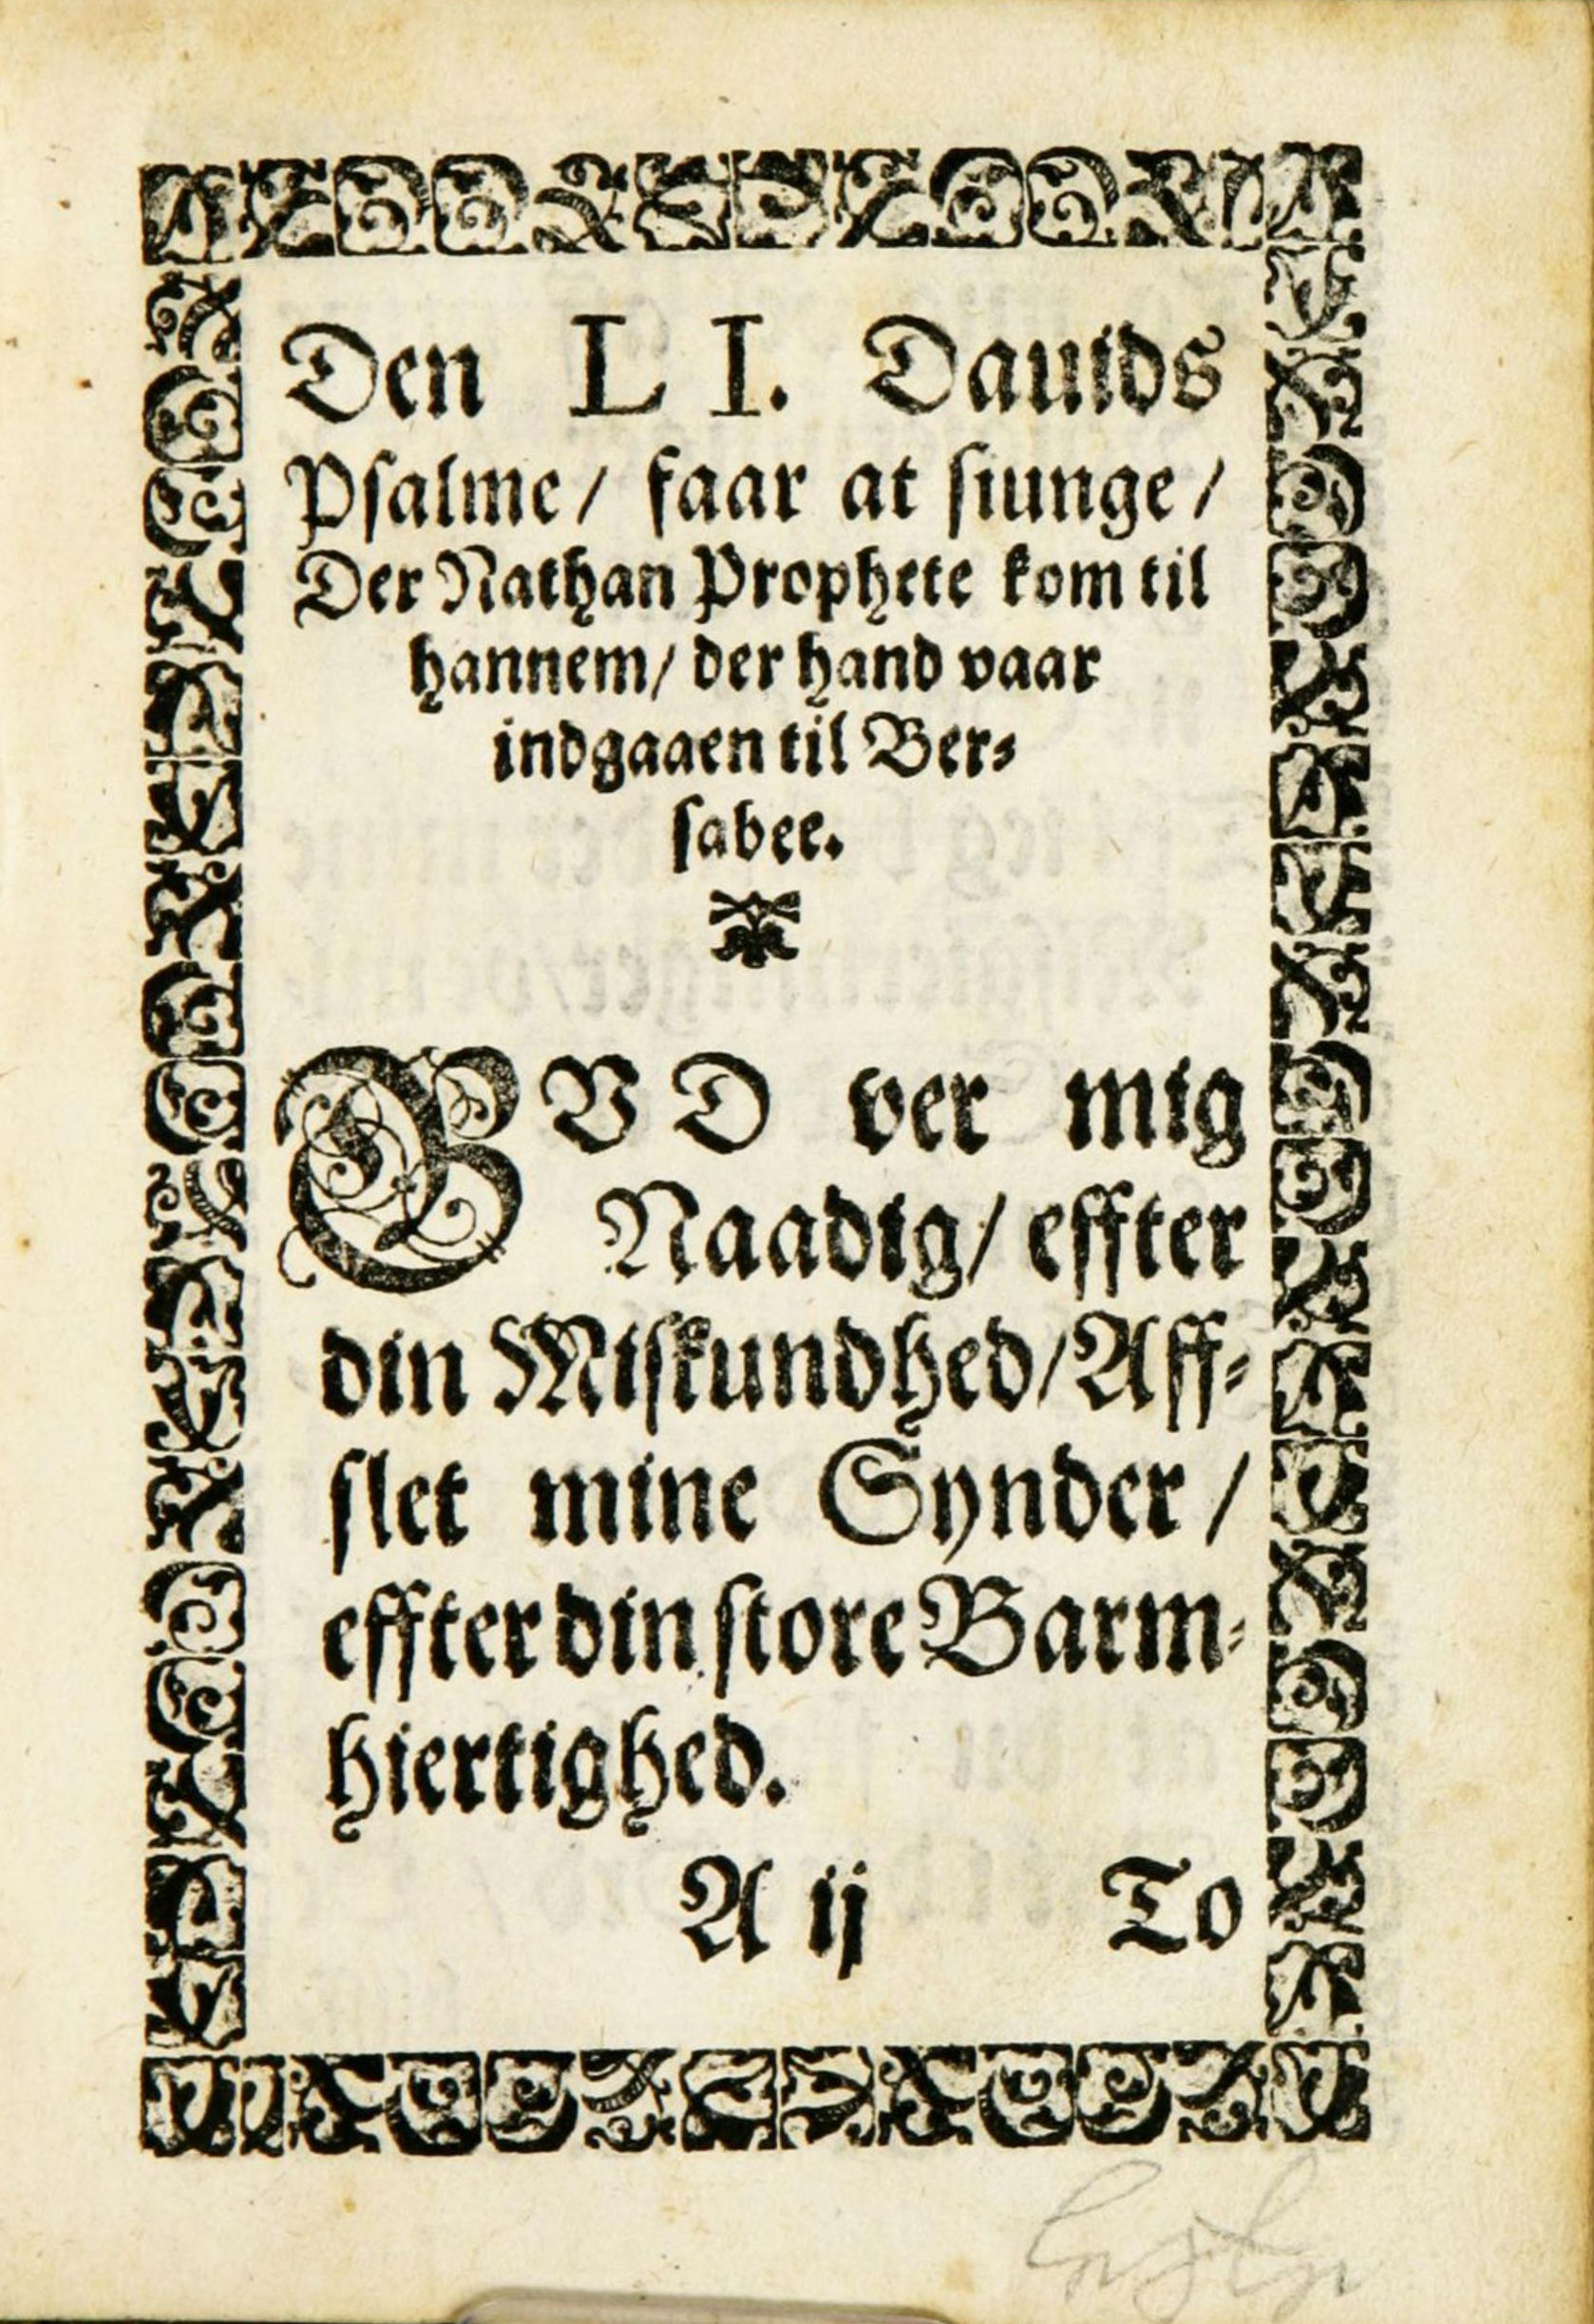 Den L I. Dauids
Psalme / faar at siunge /
Der Nathan Prophete kom til
hannem / der hand vaar
indgaaen til Ber⸗
sabee.
GVD ver mig
Naadig / effter
din Miskundhed / Aff⸗
slet mine Synder /
effter din store Barm⸗
hiertighed.
A ij To